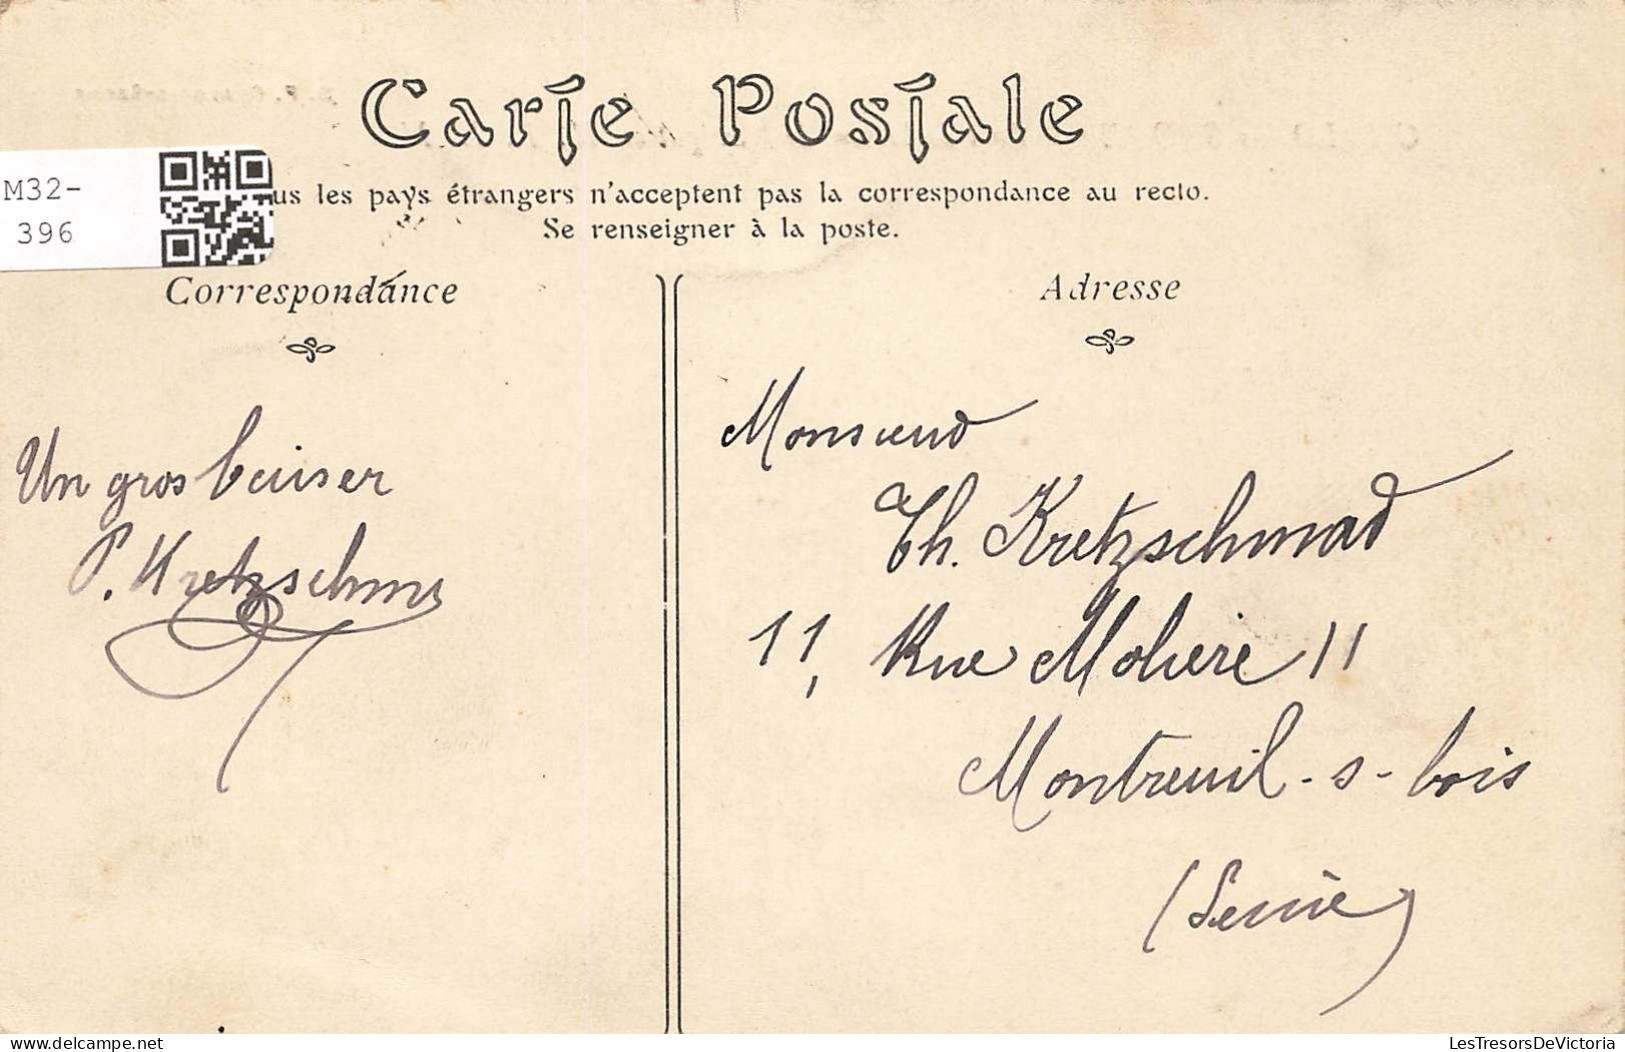 Carte Postale
M32-
396
us les pays étrangers n'acceptent pas la correspondance au recto.
Se renseigner à la poste.
Correspondance
Adresse
Un gros baiser
P. Kretzschmar
Monsieur
Th. Kretzschmar
11, Rue Molière 11
Montreuil-s-bois
(Seine)
www.delcampe.net
LesTresorsDeVictoria